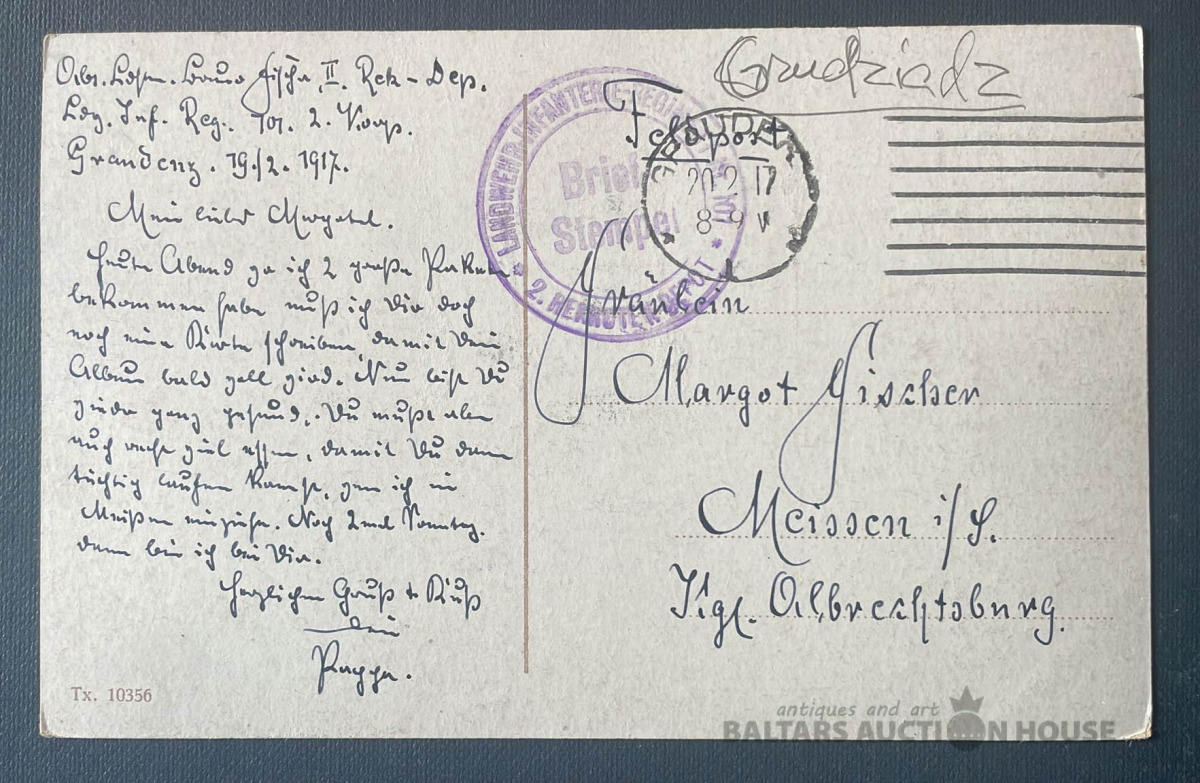 Obs. Ldstm. Bruno Fischer, II. Rek-Dep.
Ldw. Inf. Reg. 101. 2. Korp.
Graudenz. 19./2. 1917.
Mein liebes Margotel.
Heute Abend wo ich 2 große Pakete
bekommen habe muß ich Dir doch
noch eine Karte schreiben, damit Dein
Album bald voll wird. Nun bist Du
wieder ganz gesund. Du mußt aber
auch recht viel essen, damit Du dann
tüchtig laufen kannst, wenn ich in
Meißen einziehe. Noch 2mal Sonntag.
dann bin ich bei Dir.
Herzlichen Gruß + Kuß
Dein
Pappa.
Tx. 10356
Grudziadz
Feldpost
LANDWEHR-INFANTERIE-REGIMENT
Brief
Stempel
2. REKRUTEN-DEPOT
GRAUDENZ
20 2 17
8-9 V
Fräulein
Margot Fischer
Meissen i/S.
Kgl. Albrechtsburg.
antiques and art
BALTARS AUCTION HOUSE